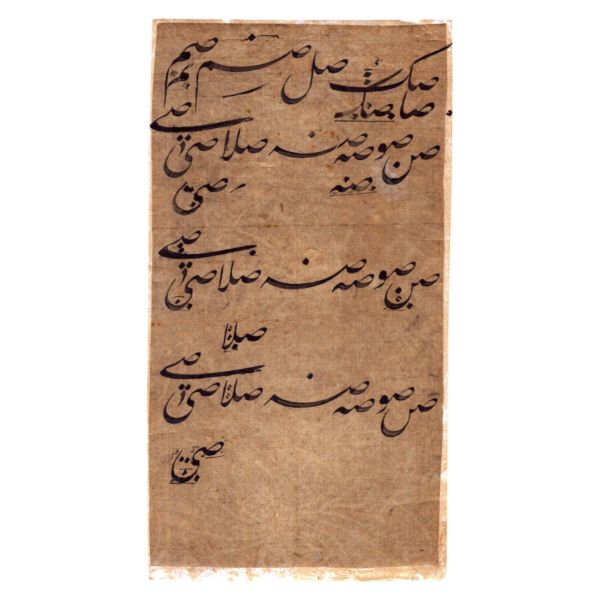 صک صل صم صم
صا صک
صن صو صه صه صلا صی صی
صه صی
صن صو صه صه صلا صی صی
صلا
صن صو صه صه صلا صی صی
صی